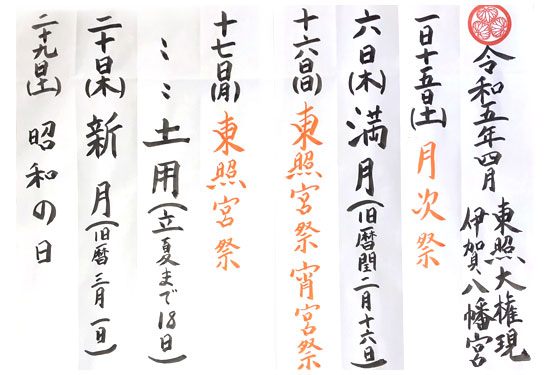 令和五年四月
東照大権現
伊賀八幡宮
一日十五日(土) 月次祭
六日(木) 満月(旧暦閏二月十六日)
十六日(日) 東照宮祭宵宮祭
十七日(月) 東照宮祭
〃 〃 土用(立夏まで18日)
二十日(木) 新月(旧暦三月一日)
二十九日(土) 昭和の日